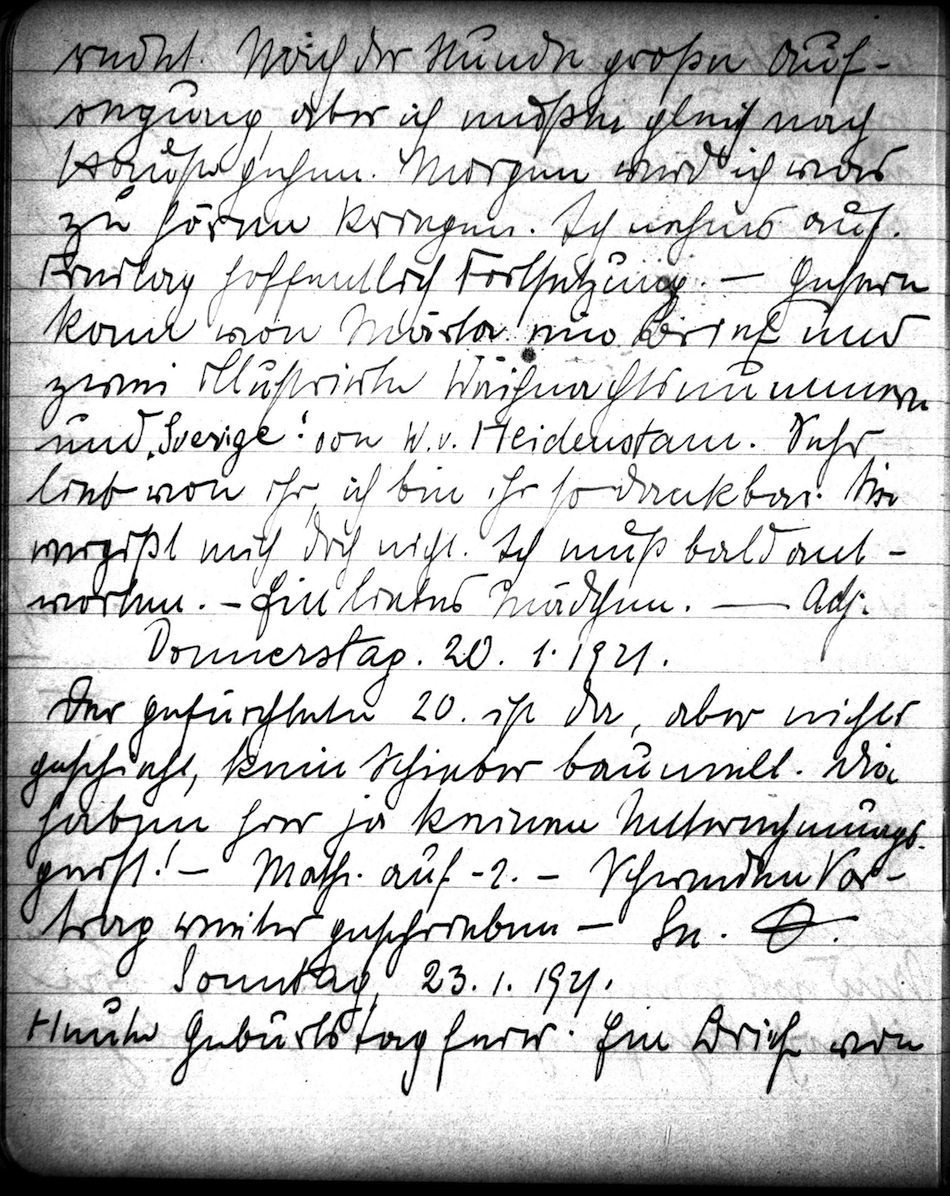 redet. Nach der Stunde große Auf-
regung, aber ich mußte gleich nach
Hause gehen. Morgen werd' ich was
zu hören kriegen. Ich nehms auf.
Freitag hoffentlich Fortsetzung. — Gestern
kam von Märta ein Brief und
zwei illustrierte Weihnachtsnummern
und „Sverige“ von W. v. Heidenstam. Sehr
lieb von ihr, ich bin ihr so dankbar. Sie
vergißt mich doch nicht. Ich muß bald ant-
worten. – Ein liebes Mädchen. — Adj.
Donnerstag. 20. 1. 1921.
Der gefürchtete 20. ist da, aber nichts
geschieht, kein Schieber baumelt. Die
haben hier ja keinen Unternehmungs-
geist! – Math. auf -2. – Schweden Vor-
trag weiter geschrieben —
Sonntag, 23. 1. 1921.
Heute Geburtstagsfeier. Ein von